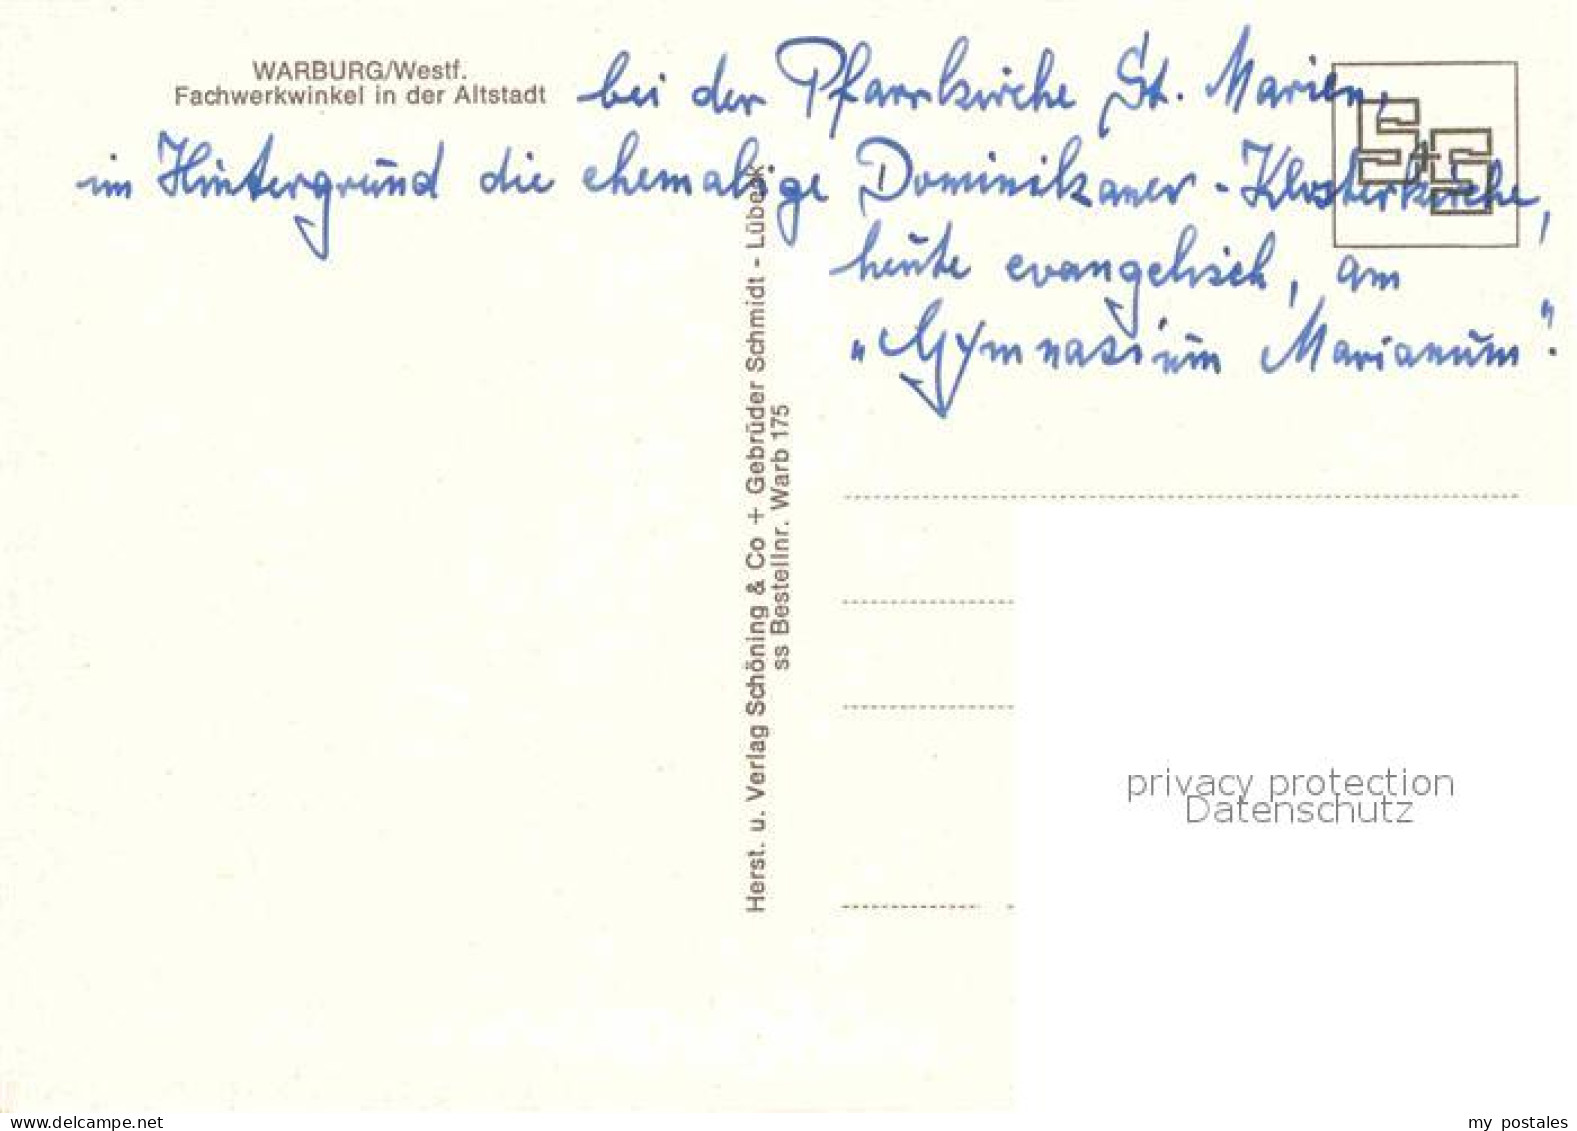 WARBURG/Westf.
Fachwerkwinkel in der Altstadt
bei der Pfarrkirche St. Marien,
im Hintergrund die ehemalige Dominikaner-Klosterkirche,
heute evangelisch, am
„Gymnasium Marianum".
S+S
Herst. u. Verlag Schöning & Co + Gebrüder Schmidt - Lübeck
ss Bestellnr. Warb 175
privacy protection
Datenschutz
oldthing.com
my postales